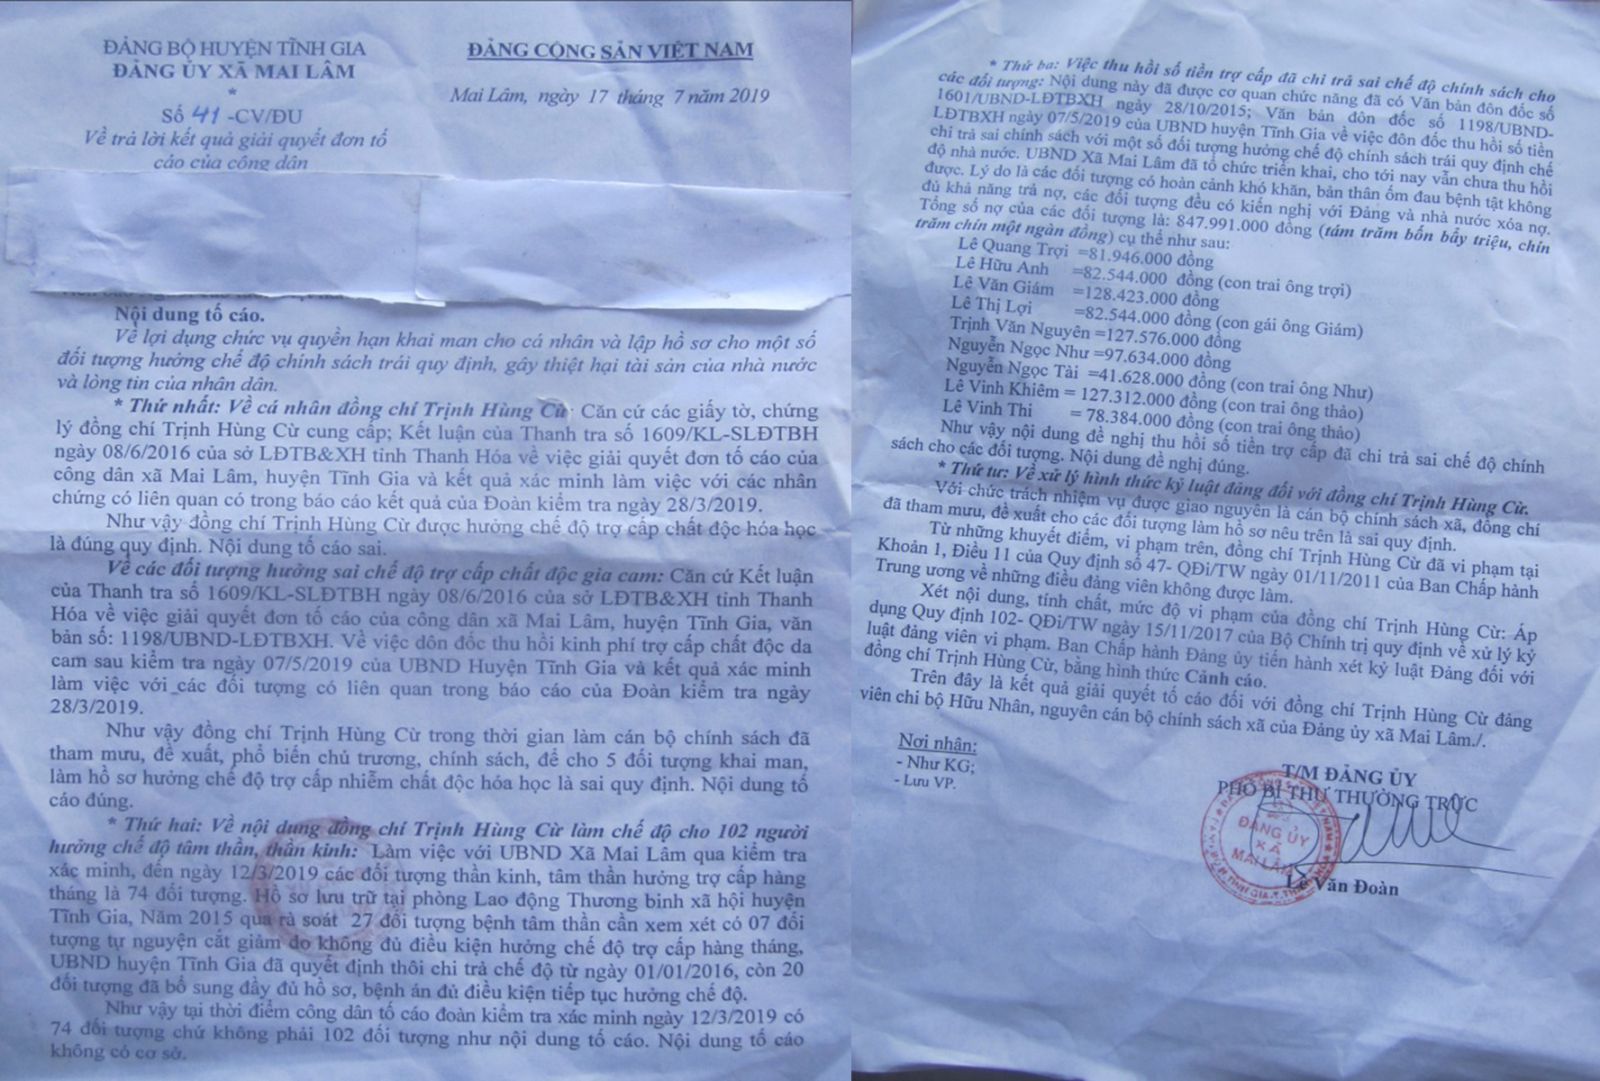 ĐẢNG BỘ HUYỆN TĨNH GIA
ĐẢNG ỦY XÃ MAI LÂM
*
Số 41 -CV/ĐU
Về trả lời kết quả giải quyết đơn tố
cáo của công dân
ĐẢNG CỘNG SẢN VIỆT NAM
Mai Lâm, ngày 17 tháng 7 năm 2019
Nội dung tố cáo.
Về lợi dụng chức vụ quyền hạn khai man cho cá nhân và lập hồ sơ cho một số
đối tượng hưởng chế độ chính sách trái quy định, gây thiệt hại tài sản của nhà nước
và lòng tin của nhân dân.
* Thứ nhất: Về cá nhân đồng chí Trịnh Hùng Cừ: Căn cứ các giấy tờ, chứng
lý đồng chí Trịnh Hùng Cừ cung cấp; Kết luận của Thanh tra số 1609/KL-SLĐTBH
ngày 08/6/2016 của sở LĐTB&XH tỉnh Thanh Hóa về việc giải quyết đơn tố cáo của
công dân xã Mai Lâm, huyện Tĩnh Gia và kết quả xác minh làm việc với các nhân
chứng có liên quan có trong báo cáo kết quả của Đoàn kiểm tra ngày 28/3/2019.
Như vậy đồng chí Trịnh Hùng Cừ được hưởng chế độ trợ cấp chất độc hóa học
là đúng quy định. Nội dung tố cáo sai.
Về các đối tượng hưởng sai chế độ trợ cấp chất độc gia cam: Căn cứ Kết luận
của Thanh tra số 1609/KL-SLĐTBH ngày 08/6/2016 của sở LĐTB&XH tỉnh Thanh
Hóa về việc giải quyết đơn tố cáo của công dân xã Mai Lâm, huyện Tĩnh Gia, văn
bản số: 1198/UBND-LĐTBXH. Về việc dôn đốc thu hồi kinh phí trợ cấp chất độc da
cam sau kiểm tra ngày 07/5/2019 của UBND Huyện Tĩnh Gia và kết quả xác minh
làm việc với các đối tượng có liên quan trong báo cáo của Đoàn kiểm tra ngày
28/3/2019.
Như vậy đồng chí Trịnh Hùng Cừ trong thời gian làm cán bộ chính sách đã
tham mưu, đề xuất, phổ biến chủ trương, chính sách, để cho 5 đối tượng khai man,
làm hồ sơ hưởng chế độ trợ cấp nhiễm chất độc hóa học là sai quy định. Nội dung tố
cáo đúng.
* Thứ hai: Về nội dung đồng chí Trịnh Hùng Cừ làm chế độ cho 102 người
hưởng chế độ tâm thần, thần kinh: Làm việc với UBND Xã Mai Lâm qua kiểm tra
xác minh, đến ngày 12/3/2019 các đối tượng thần kinh, tâm thần hưởng trợ cấp hàng
tháng là 74 đối tượng. Hồ sơ lưu trữ tại phòng Lao động Thương binh xã hội huyện
Tĩnh Gia, Năm 2015 qua rà soát 27 đối tượng bệnh tâm thần cần xem xét có 07 đối
tượng tự nguyện cắt giảm do không đủ điều kiện hưởng chế độ trợ cấp hàng tháng,
UBND huyện Tĩnh Gia đã quyết định thôi chi trả chế độ từ ngày 01/01/2016, còn 20
đối tượng đã bổ sung đầy đủ hồ sơ, bệnh án đủ điều kiện tiếp tục hưởng chế độ.
Như vậy tại thời điểm công dân tố cáo đoàn kiểm tra xác minh ngày 12/3/2019 có
74 đối tượng chứ không phải 102 đối tượng như nội dung tố cáo. Nội dung tố cáo
không có cơ sở.
* Thứ ba: Việc thu hồi số tiền trợ cấp đã chi trả sai chế độ chính sách cho
các đối tượng: Nội dung này đã được cơ quan chức năng đã có Văn bản đôn đốc số
1601/UBND-LĐTBXH ngày 28/10/2015; Văn bản đôn đốc số 1198/UBND-
LĐTBXH ngày 07/5/2019 của UBND huyện Tĩnh Gia về việc đôn đốc thu hồi số tiền
chi trả sai chính sách với một số đối tượng hưởng chế độ chính sách trái quy định chế
độ nhà nước. UBND Xã Mai Lâm đã tổ chức triển khai, cho tới nay vẫn chưa thu hồi
được. Lý do là các đối tượng có hoàn cảnh khó khăn, bản thân ốm đau bệnh tật không
đủ khả năng trả nợ, các đối tượng đều có kiến nghị với Đảng và nhà nước xóa nợ.
Tổng số nợ của các đối tượng là: 847.991.000 đồng (tám trăm bốn bẩy triệu, chín
trăm chín một ngàn đồng) cụ thể như sau:
Lê Quang Trợi =81.946.000 đồng
Lê Hữu Anh =82.544.000 đồng (con trai ông trợi)
Lê Văn Giám =128.423.000 đồng
Lê Thị Lợi =82.544.000 đồng (con gái ông Giám)
Trịnh Văn Nguyên =127.576.000 đồng
Nguyễn Ngọc Như =97.634.000 đồng
Nguyễn Ngọc Tài =41.628.000 đồng (con trai ông Như)
Lê Vinh Khiêm = 127.312.000 đồng (con trai ông thảo)
Lê Vinh Thi = 78.384.000 đồng (con trai ông thảo)
Như vậy nội dung đề nghị thu hồi số tiền trợ cấp đã chi trả sai chế độ chính
sách cho các đối tượng. Nội dung đề nghị đúng.
* Thứ tư: Về xử lý hình thức kỷ luật đảng đối với đồng chí Trịnh Hùng Cừ.
Với chức trách nhiệm vụ được giao nguyên là cán bộ chính sách xã, đồng chí
đã tham mưu, đề xuất cho các đối tượng làm hồ sơ nêu trên là sai quy định.
Từ những khuyết điểm, vi phạm trên, đồng chí Trịnh Hùng Cừ đã vi phạm tại
Khoản 1, Điều 11 của Quy định số 47- QĐi/TW ngày 01/11/2011 của Ban Chấp hành
Trung ương về những điều đảng viên không được làm.
Xét nội dung, tính chất, mức độ vi phạm của đồng chí Trịnh Hùng Cừ: Áp
dụng Quy định 102- QĐi/TW ngày 15/11/2017 của Bộ Chính trị quy định về xử lý kỷ
luật đảng viên vi phạm. Ban Chấp hành Đảng ủy tiến hành xét kỷ luật Đảng đối với
đồng chí Trịnh Hùng Cừ, bằng hình thức Cảnh cáo.
Trên đây là kết quả giải quyết tố cáo đối với đồng chí Trịnh Hùng Cừ đảng
viên chi bộ Hữu Nhân, nguyên cán bộ chính sách xã của Đảng ủy xã Mai Lâm./.
Nơi nhận:
- Như KG;
- Lưu VP.
T/M ĐẢNG ỦY
PHÓ BÍ THƯ THƯỜNG TRỰC
ĐẢNG ỦY
XÃ
MAI LÂM
Lê Văn Đoàn